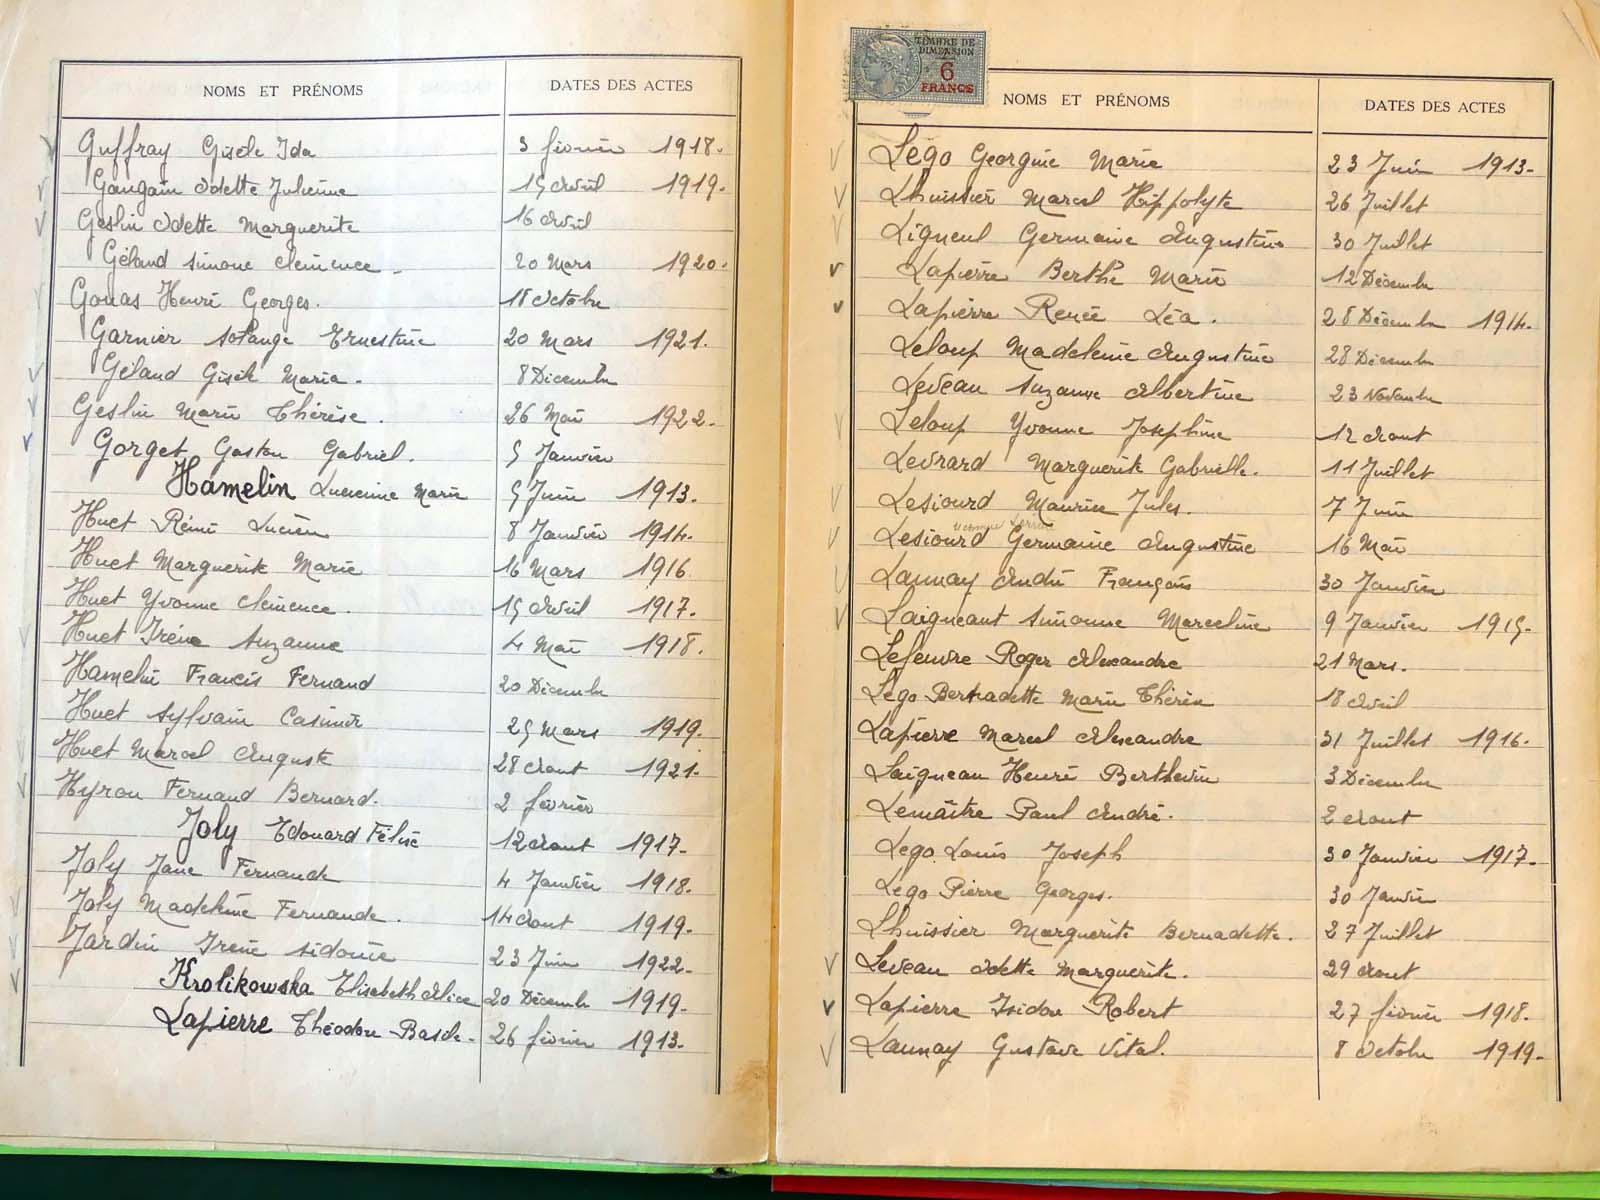 NOMS ET PRÉNOMS DATES DES ACTES
Guffray Gisèle Ida 3 février 1918.
Gaugain Odette Julienne 15 Avril 1919.
Geslin Odette Marguerite 16 Avril
Géland Simone Clémence 20 Mars 1920.
Gouas Henri Georges. 18 Octobre
Garnier Solange Ernestine 20 Mars 1921.
Géland Gisèle Maria. 8 Décembre
Geslin Marie Thérèse. 26 Mai 1922.
Gorget Gaston Gabriel. 5 Janvier
Hamelin Lucienne Marie 5 Juin 1913.
Huet Rémi Lucien 8 Janvier 1914.
Huet Marguerite Marie 16 Mars 1916
Huet Yvonne Clémence. 15 Avril 1917.
Huet Irène Suzanne 4 Mai 1918.
Hamelin Francis Fernand 20 Décembre
Huet Sylvain Casimir 25 Mars 1919.
Huet Marcel Auguste 28 Aout 1921.
Hyron Fernand Bernard. 2 février
Joly Edouard Félix 12 Aout 1917.
Joly Jane Fernande 4 Janvier 1918.
Joly Madeleine Fernande. 14 Aout 1919.
Jardin Irène Sidonie 23 Juin 1922.
Krolikowska Elisabeth Alice 20 Décembre 1919.
Lapierre Théodore Basile. 26 février 1913.
TIMBRE DE
DIMENSION
6
FRANCS
NOMS ET PRÉNOMS DATES DES ACTES
Légo Georgine Marie 23 Juin 1913.
Lhuissier Marcel Hippolyte 26 Juillet
Ligneul Germaine Augustine 30 Juillet
Lapierre Berthe Marie 12 Décembre
Lapierre Renée Léa. 28 Décembre 1914.
Leloup Madeleine Augustine 28 Décembre
Leveau Suzanne Albertine 23 Novembre
Leloup Yvonne Joséphine 12 Aout
Levrard Marguerite Gabrielle. 11 Juillet
Lesiourd Maurice Jules. 7 Juin
Lesiourd Germaine Augustine 16 Mai
Launay André François 30 Janvier
Laigneant Simonne Marceline 9 Janvier 1915.
Lefeuvre Roger Alexandre 21 Mars.
Légo Bernadette Marie Thérèse 18 Avril
Lapierre Marcel Alexandre 31 Juillet 1916.
Laigneau Henri Berthevin 3 Décembre
Lemaître Paul André. 2 Aout
Légo Louis Joseph 30 Janvier 1917.
Légo Pierre Georges. 30 Janvier
Lhuissier Marguerite Bernadette. 27 Juillet
Leveau Odette Marguerite. 29 Aout
Lapierre Isidore Robert 27 février 1918.
Launay Gustave Vital. 8 Octobre 1919.